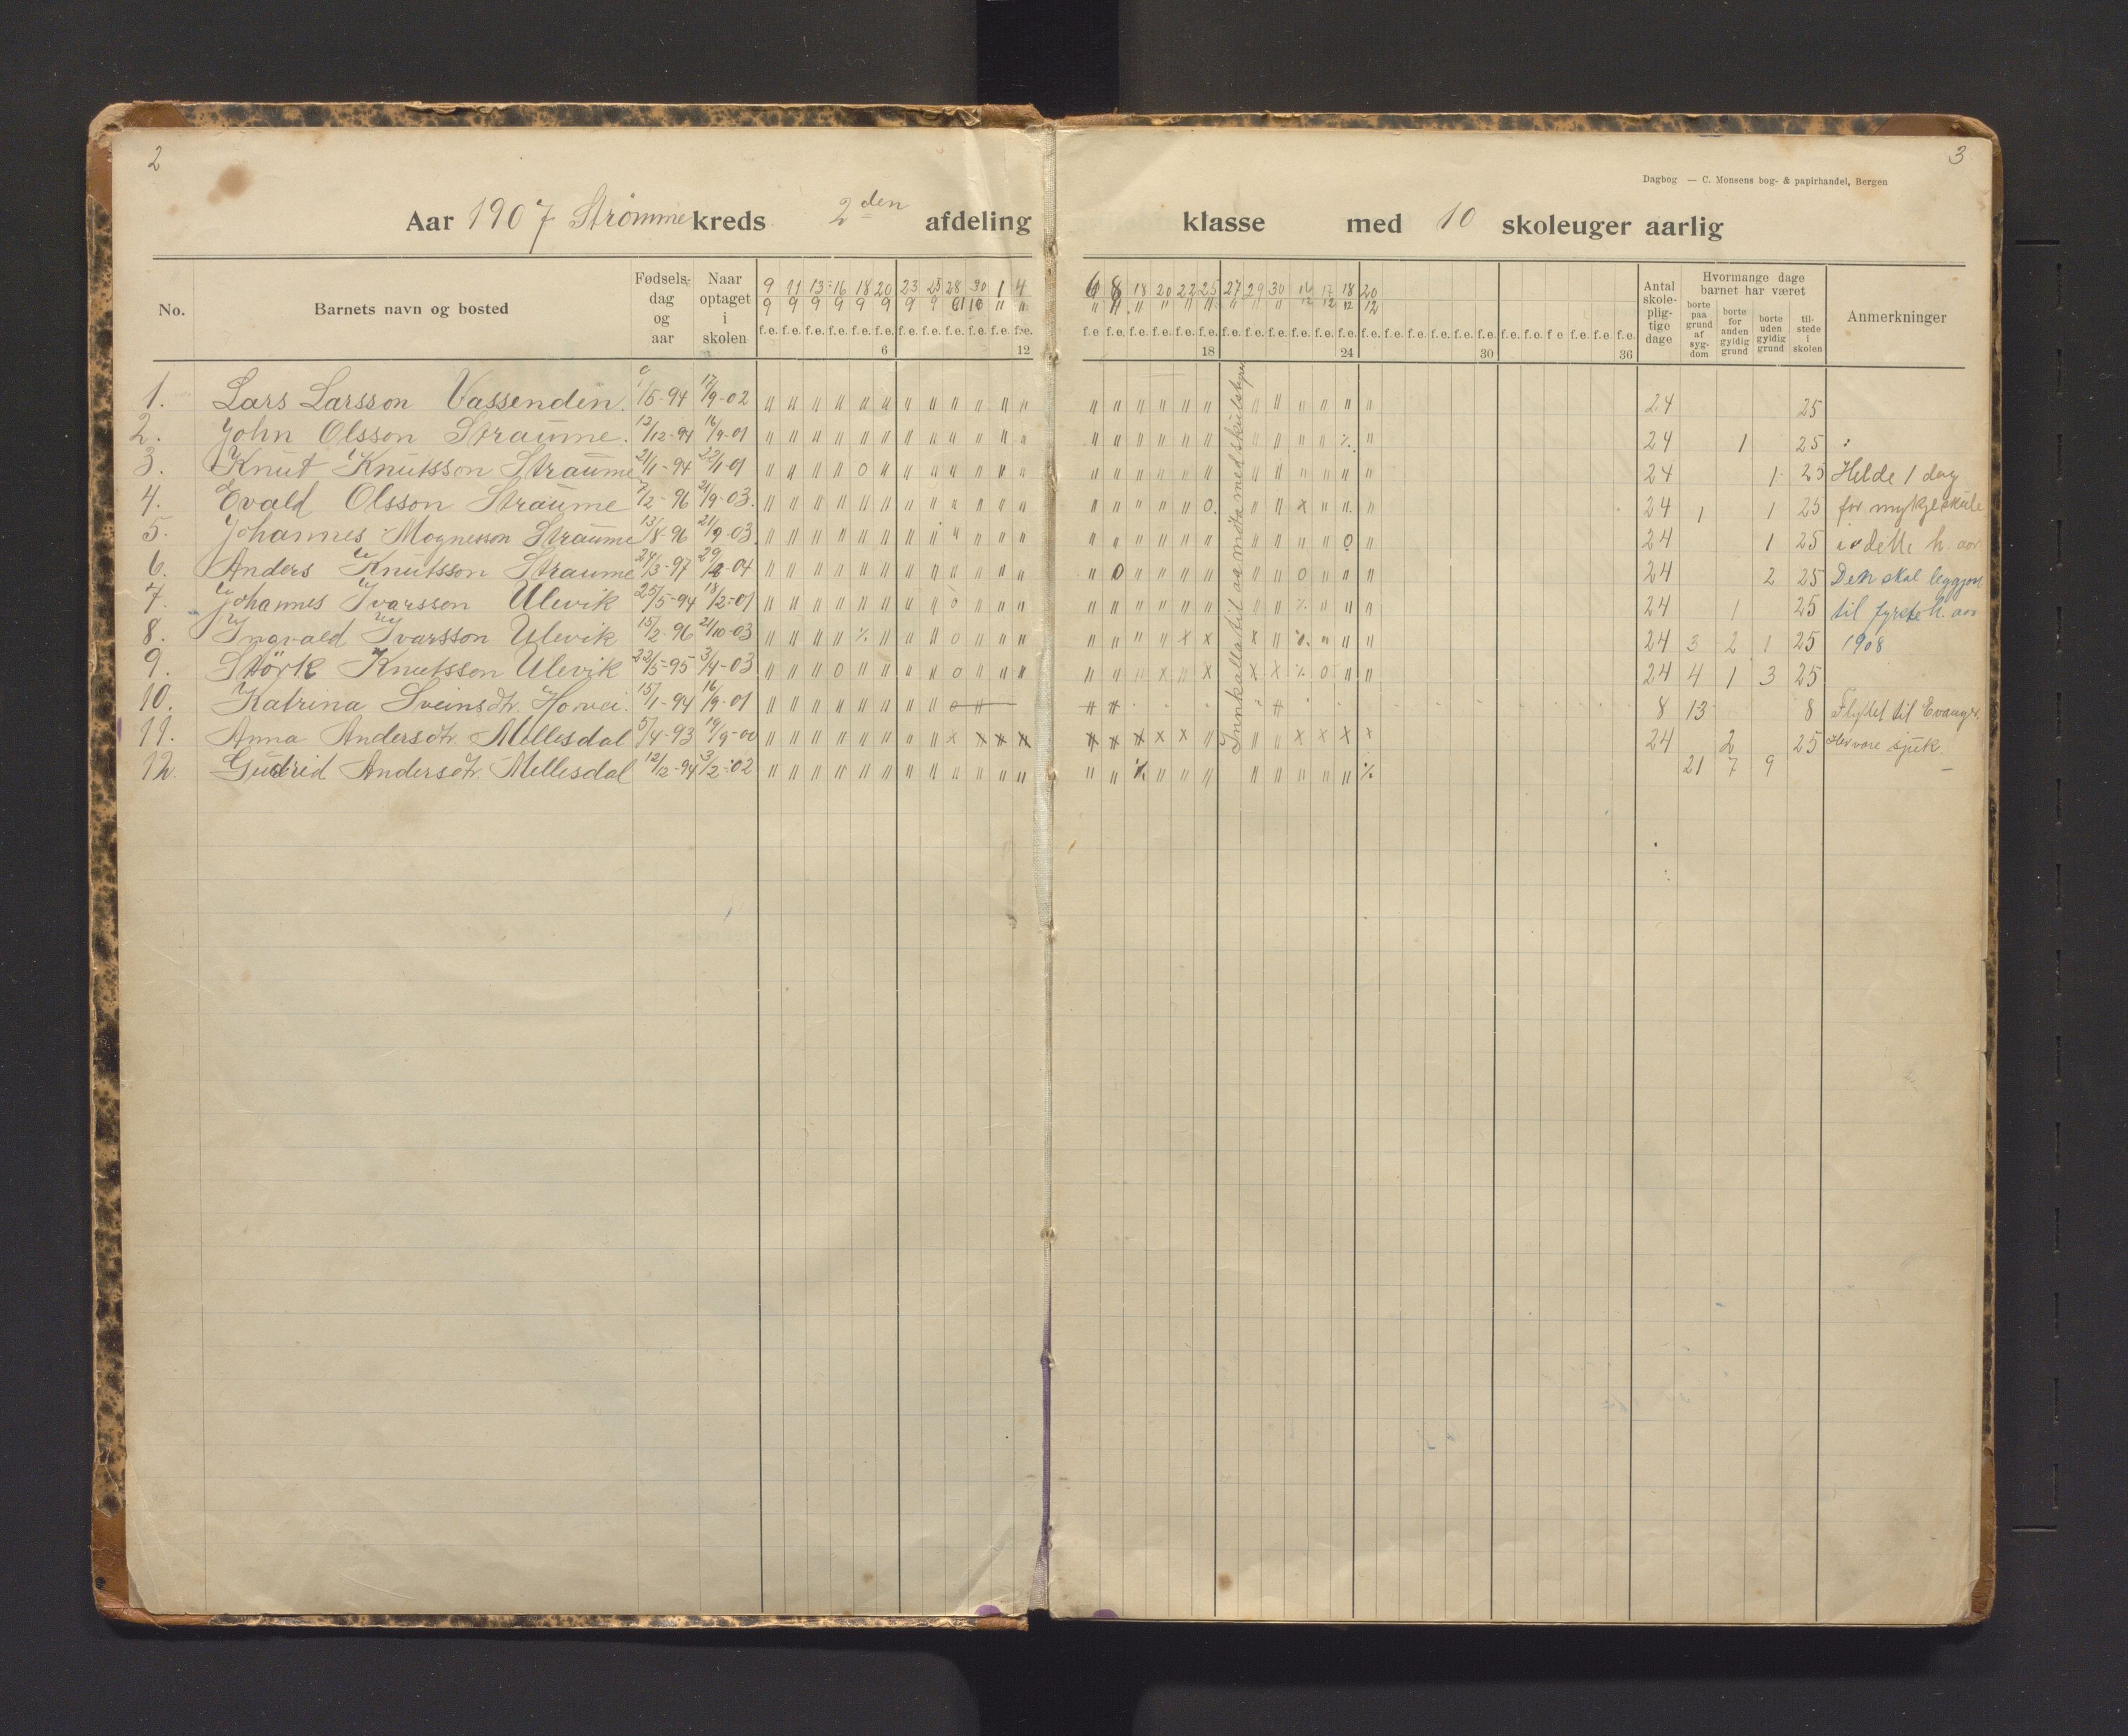 2
3
Dagbog — C. Monsens bog- & papirhandel, Bergen
Aar 1907 Strømme kreds 2den afdeling klasse med 10 skoleuger aarlig
No. Barnets navn og bosted Fødsels-dag og aar Naar optaget i skolen
9 11 13 16 18 20 23 25 28 30 1 4 6 8 18 20 22 25 27 29 30 14 17 18 20
Antal skole-plig-tige dage Hvormange dage barnet har været Anmerkninger
borte paa grund af syg-dom borte for anden gyldig grund borte uden gyldig grund til-stede i skolen
6 12 18 24 30 36
1. Lars Larsson Vassenden. 17/9-02 24 25
2. John Olsson Straume. 12/12-94 16/9-01 24 1 25
3. Knut Knutsson Straume 21/1-94 22/1-01 24 1 25 Helde 1 dag
4. Evald Olsson Straume 7/2-96 21/9-03. 24 1 1 25 for mykje skule
5. Johannes Mognesson Straume 13/8-96 21/9-03. 24 1 25 i dette h. aar
6. Anders Knutsson Straume 24/3-97 24 2 25 Den skal leggjast
7. Johannes Ivarsson Ulevik 25/5-94 18/2-01 24 1 25 til fyrste h. aar
8. Ingvald Ivarsson Ulevik 15/2-96 21/10-03 24 3 2 1 25 1908
9. Störk Knutsson Ulevik 22/5-95 3/4-03 24 4 1 3 25
10. Katrina Sveinsdtr. Horvei. 15/1-94 16/9-01 8 13 8 Flyttet til Evanger.
11. Anna Andersdtr. Mellesdal 5/4-93 19/9-00 24 2 25 Hev vore sjuk.
12. Gudrid Andersdtr. Mellesdal 12/2-94 3/2-02 21 7 9
Innkalla til aa møta med skulstyre